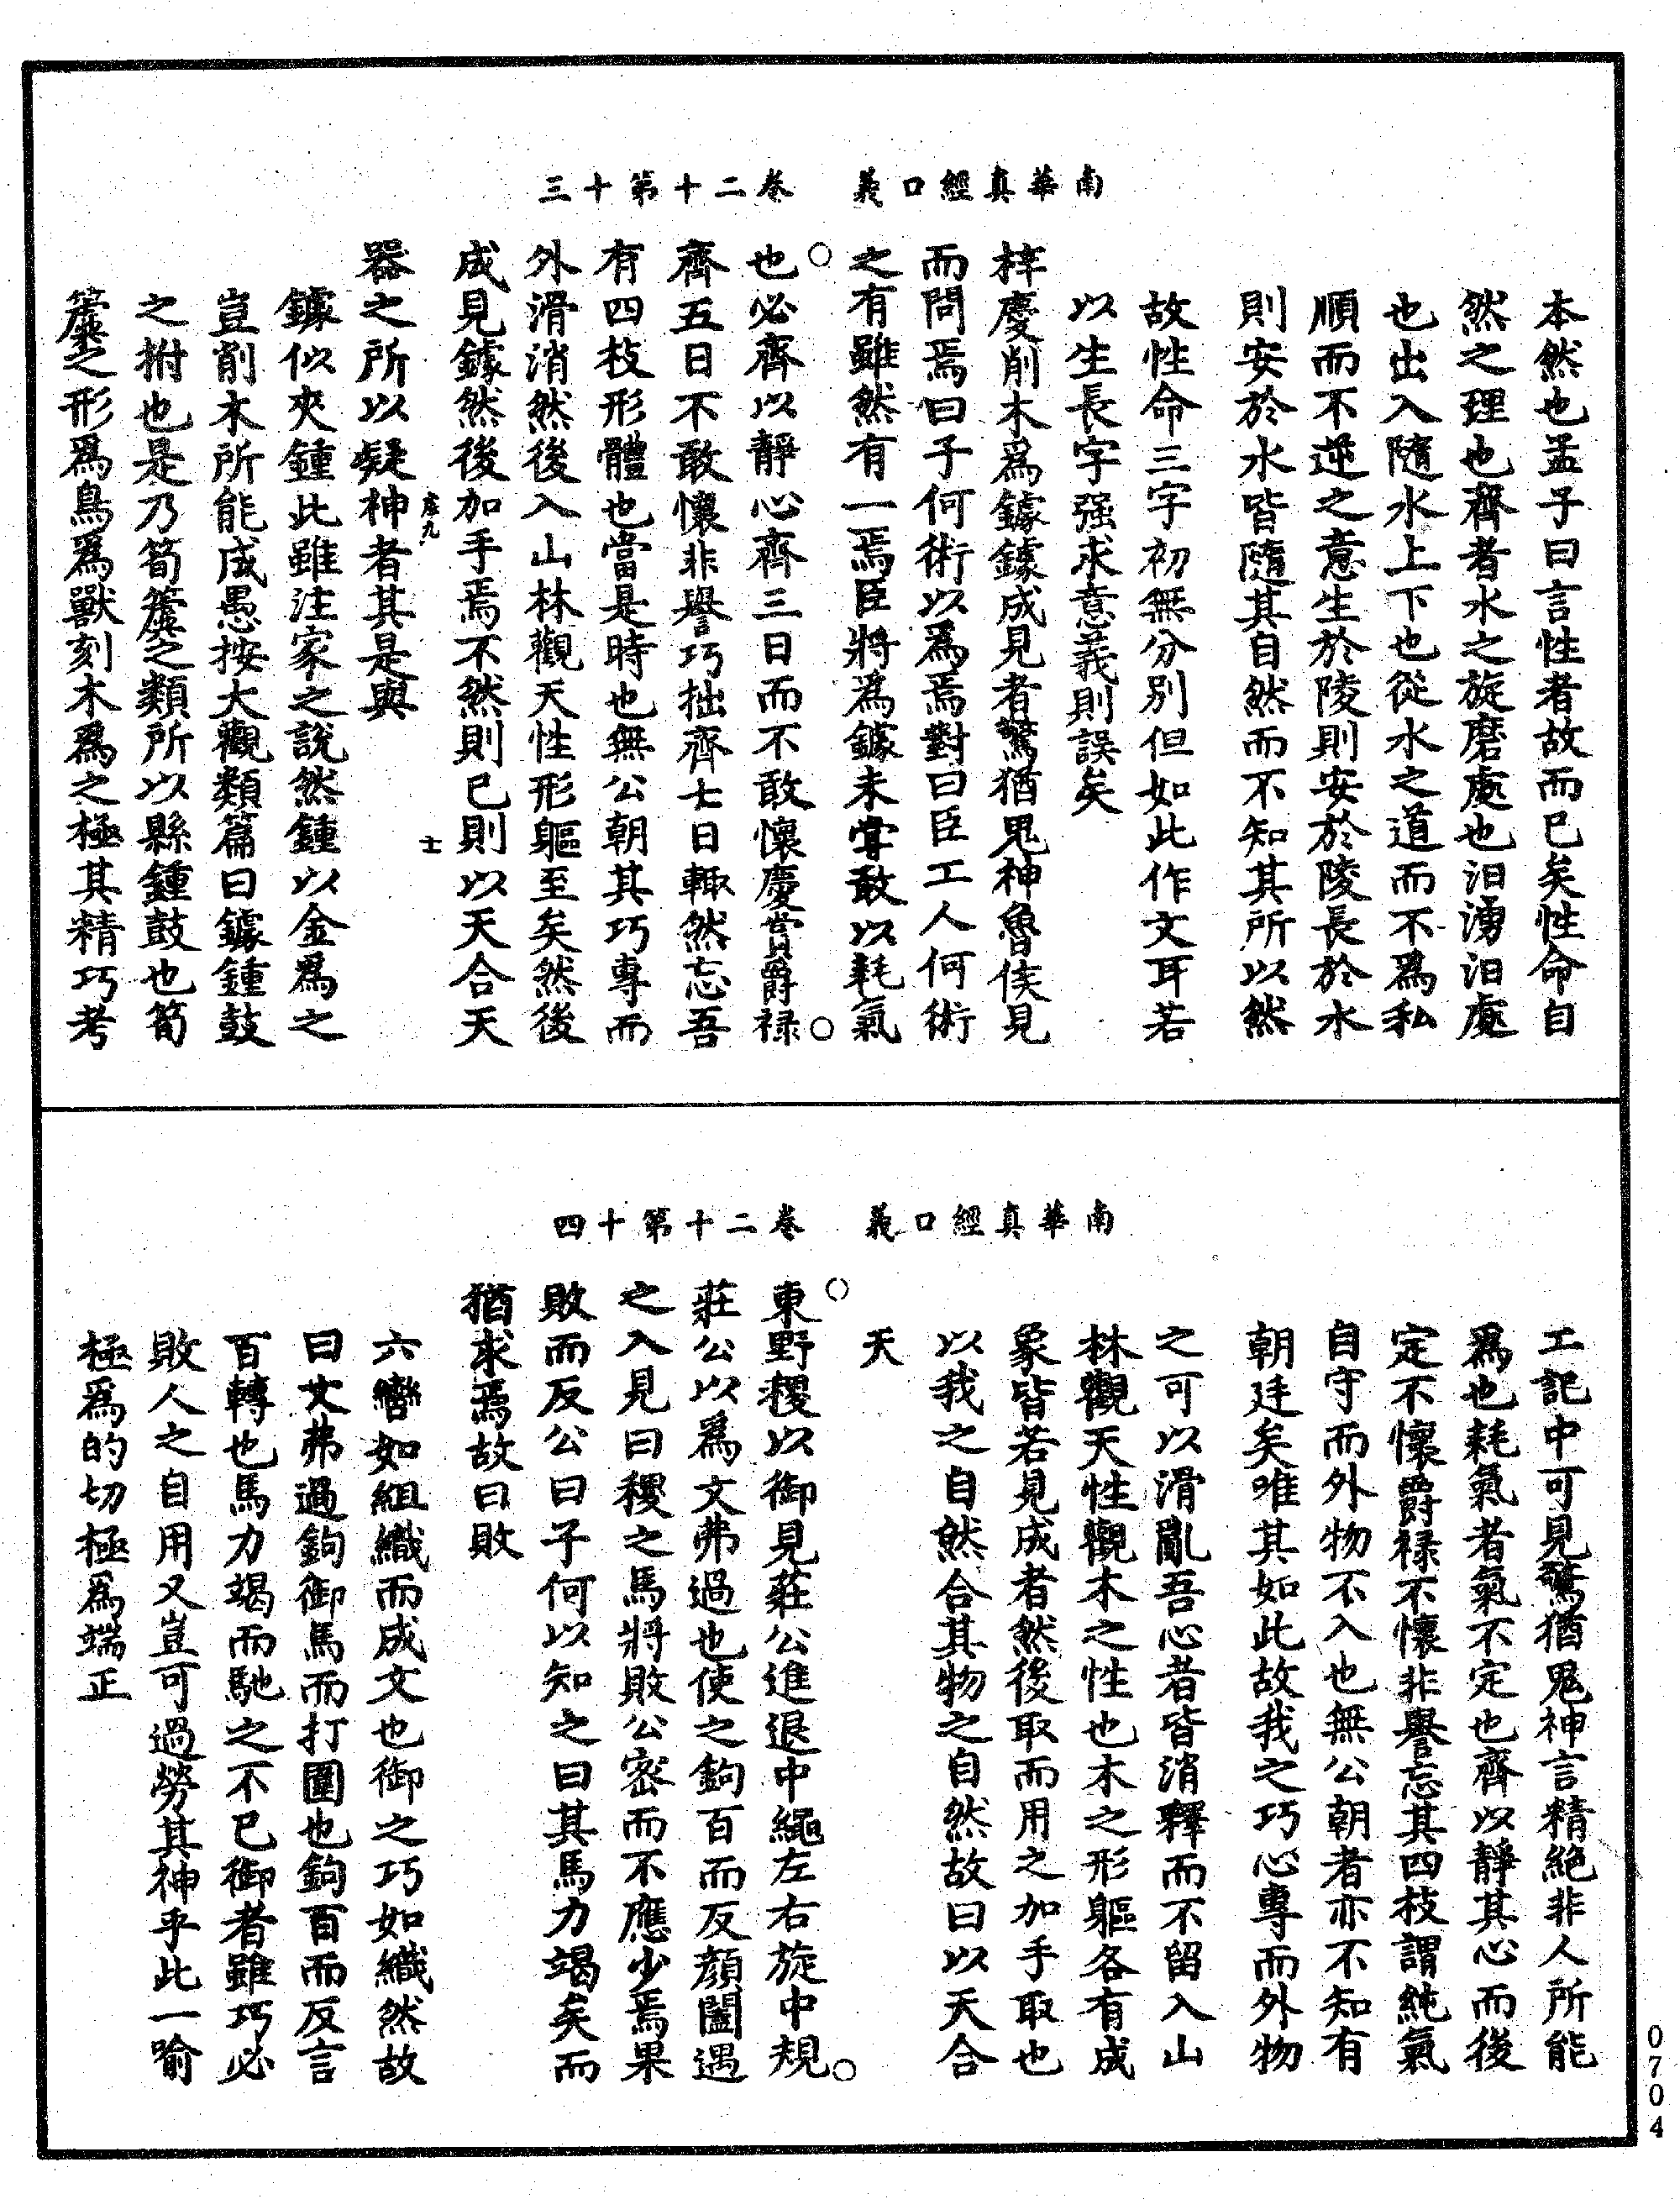 南華真經口義　卷二十第十三
本然也孟子曰言性者故而已矣性命自
然之理也齊者水之旋磨處也汨湧汨處
也出入隨水上下也從水之道而不爲私
順而不逆之意生於陵則安於陵長於水
則安於水皆隨其自然而不知其所以然
故性命三字初無分別但如此作文耳若
以生長字强求意義則誤矣
梓慶削木爲鐻鐻成見者驚猶鬼神魯侯見
而問焉曰子何術以爲焉對曰臣工人何術
之有雖然有一焉臣將爲鐻未嘗敢以耗氣
也必齊以靜心齊三日而不敢懷慶賞爵祿
齊五日不敢懷非譽巧拙齊七日輒然忘吾
有四枝形體也當是時也無公朝其巧專而
外滑消然後入山林觀天性形軀至矣然後
成見鐻然後加手焉不然則已則以天合天
器之所以疑神者其是與
鐻似夾鍾此雖注家之說然鍾以金爲之
豈削木所能成愚按大觀類篇曰鐻鍾鼓
之柎也是乃筍簴之類所以縣鍾鼓也筍
簴之形爲鳥爲獸刻木爲之極其精巧考
南華真經口義　卷二十第十四
工記中可見驚猶鬼神言精絕非人所能
爲也耗氣者氣不定也齊以靜其心而後
定不懷爵祿不懷非譽忘其四枝謂純氣
自守而外物不入也無公朝者亦不知有
朝廷矣唯其如此故我之巧心專而外物
之可以滑亂吾心者皆消釋而不留入山
林觀天性觀木之性也木之形軀各有成
象皆若見成者然後取而用之加手取也
以我之自然合其物之自然故曰以天合
天
東野稷以御見莊公進退中繩左右旋中規
莊公以爲文弗過也使之鉤百而反顏闔遇
之入見曰稷之馬將敗公密而不應少焉果
敗而反公曰子何以知之曰其馬力竭矣而
猶求焉故曰敗
六轡如組織而成文也御之巧如織然故
曰文弗過鉤御馬而打圍也鉤百而反言
百轉也馬力竭而馳之不已御者雖巧必
敗人之自用又豈可過勞其神乎此一喻
極爲的切極爲端正
0704